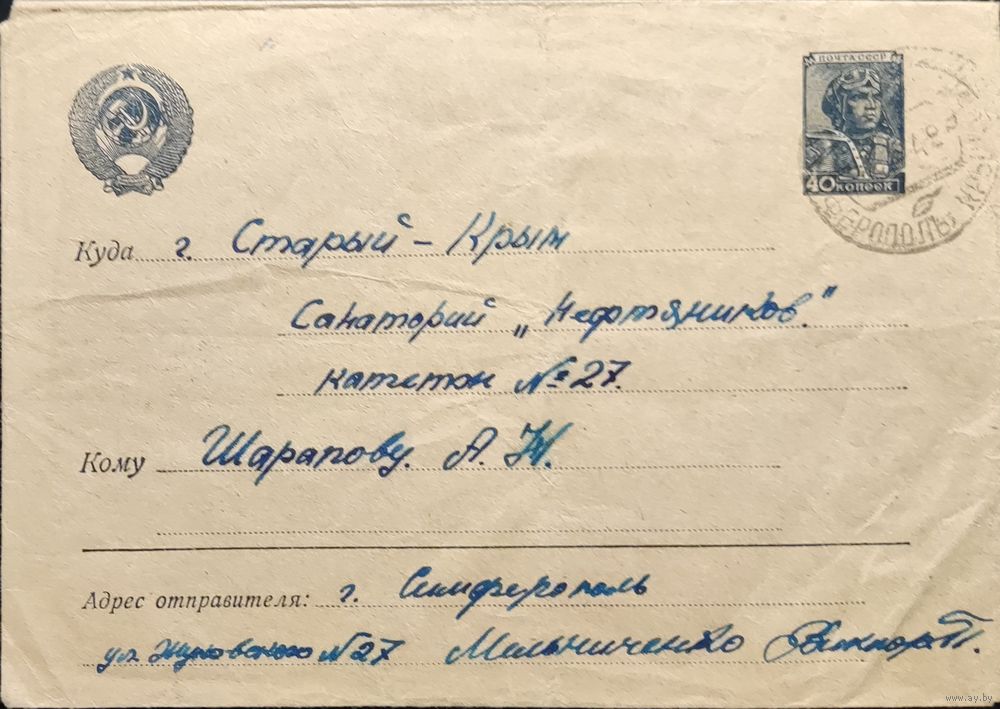 ПОЧТА СССР
40 КОПЕЕК
Куда г. Старый - Крым
Санаторий „Нефтяников."
катетон №27.
Кому Шарапову. А. Ж.
Адрес отправителя: г. Симферополь
ул. Жуковского №27 Мельниченко Виктор П.
www.ay.by